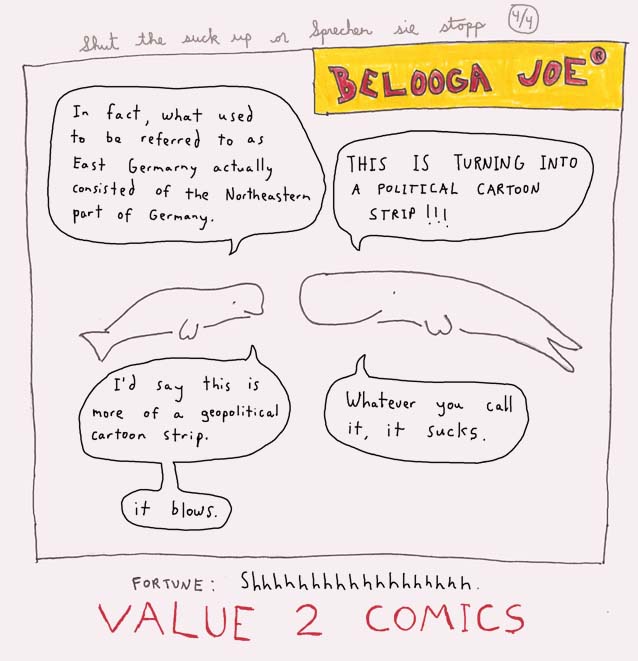 Shut the suck up or Sprechen sie stopp 4/4
BELOOGA JOE®
In fact, what used
to be referred to as
East Germarny actually
consisted of the Northeastern
part of Germany.
THIS IS TURNING INTO
A POLITICAL CARTOON
STRIP!!!
I'd say this is
more of a geopolitical
cartoon strip.
Whatever you call
it, it sucks.
it blows.
FORTUNE: Shhhhhhhhhhhhhhhhhh.
VALUE 2 COMICS